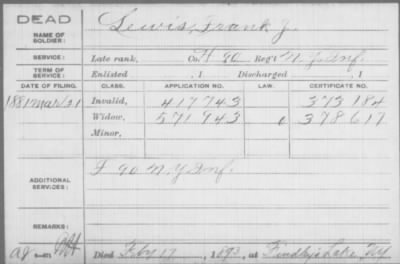 DEAD
NAME OF SOLDIER: Lewis, Frank J.
SERVICE: Late rank, Co. H 90 Reg't N.Y. Inf.
TERM OF SERVICE: Enlisted , 1 Discharged , 1
DATE OF FILING. CLASS. APPLICATION NO. LAW. CERTIFICATE NO.
1881 Mar/21 Invalid, 417743 373184
Widow, 571943 378617
Minor,
ADDITIONAL SERVICES: F 90 N.Y. Inf.
REMARKS:
Died Feby 17, 1893, at Findley's Lake NY